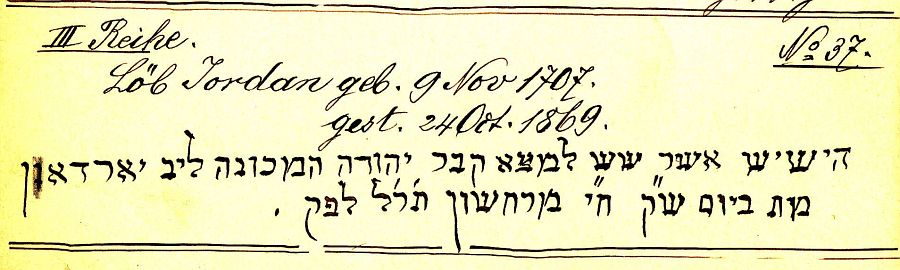 III Reihe. № 37.
Löb Jordan geb. 9 Nov 1707.
gest. 24 Oct. 1869.
הישיש אשר שש למצא קבר יהודה המכונה ליב יארדאון
מת ביום ש״ק ח״י מרחשון תר״ל לפק .